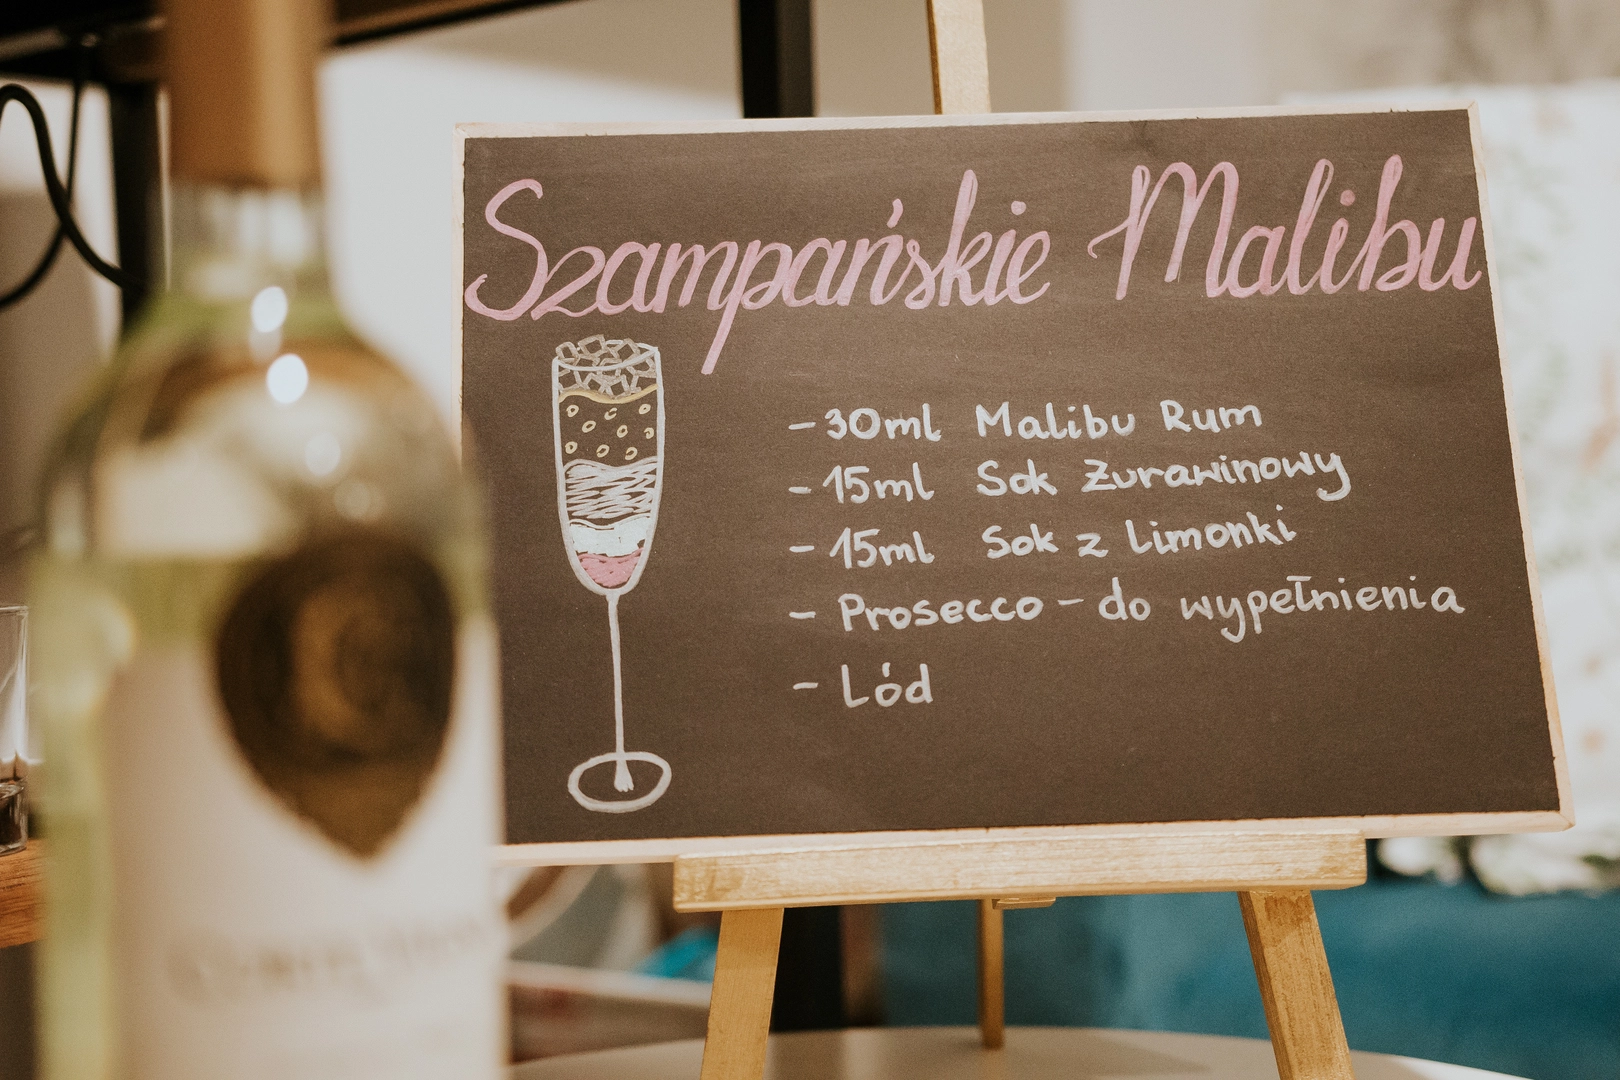 Szampańskie Malibu
- 30ml Malibu Rum
- 15ml Sok Żurawinowy
- 15ml Sok z Limonki
- Prosecco - do wypełnienia
- Lód